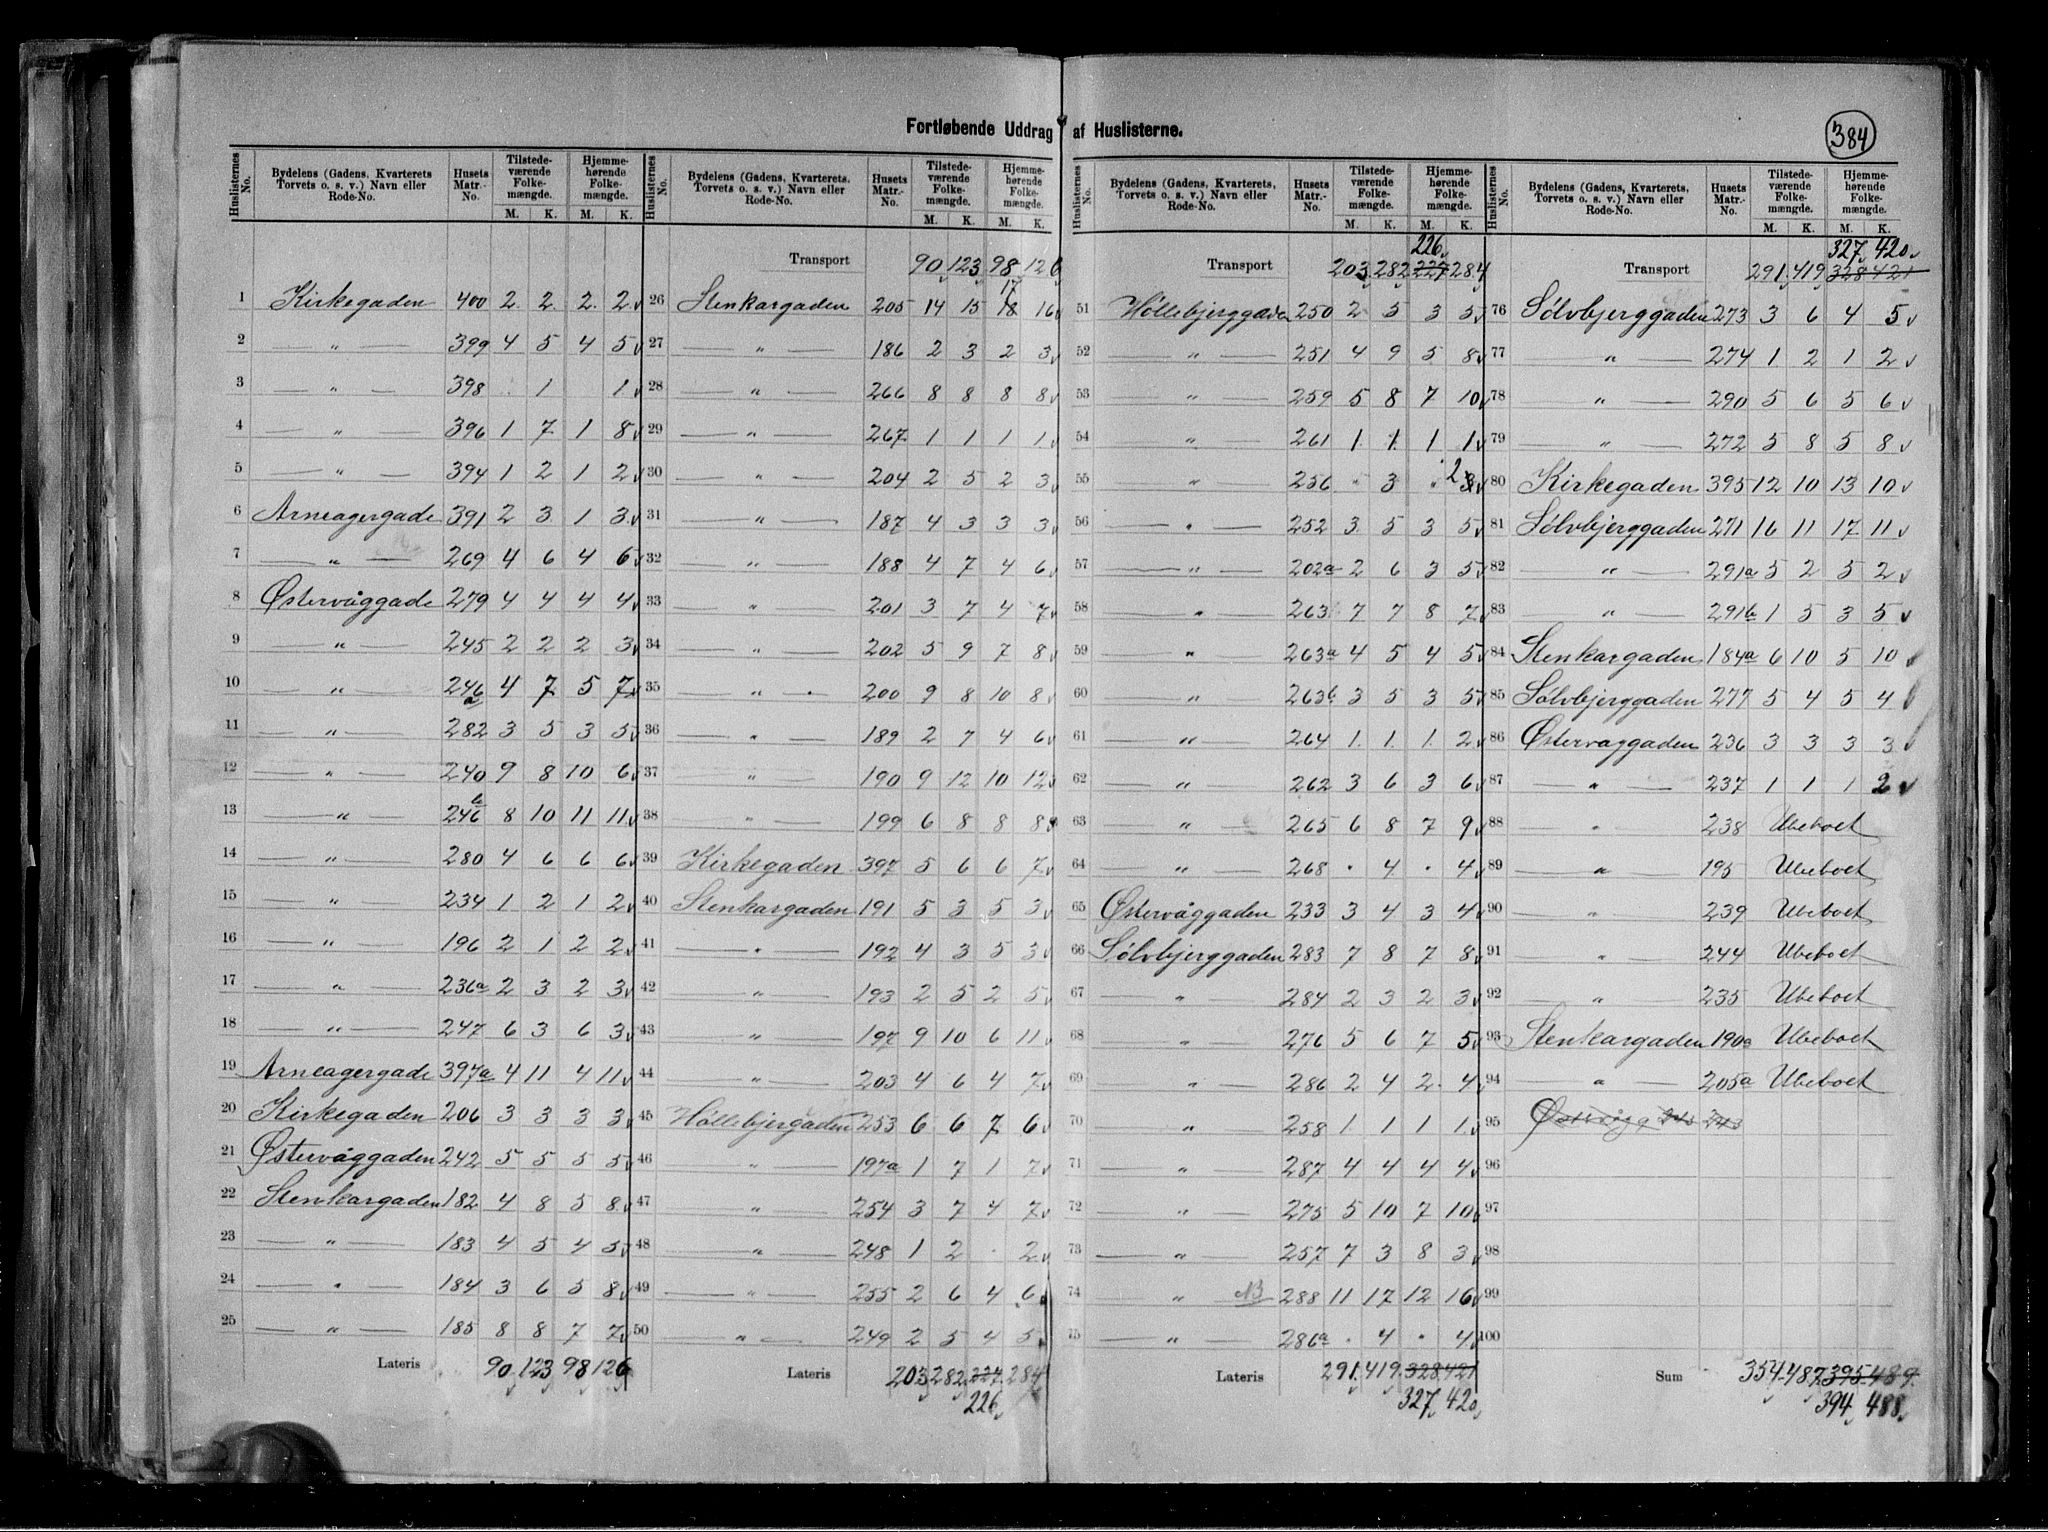 384
Fortløbende Uddrag af Huslisterne.
Huslisternes No. | Bydelens (Gadens, Kvarterets, Torvets o. s. v.) Navn eller Rode-No. | Husets Matr.-No. | Tilstedeværende Folkemængde. M. K. | Hjemmehørende Folkemængde. M. K.
1 Kirkegaden 400 2 2 2 2
2 " 399 4 5 4 5
3 " 398 . 1 1
4 " 396 1 7 1 8
5 " 394 1 2 1 2
6 Arneagergade 391 2 3 1 3
7 " 269 4 6 4 6
8 Østervåggade 279 4 4 4 4
9 " 245 2 2 2 3
10 " 246a 4 7 5 7
11 " 282 3 5 3 5
12 " 240 9 8 10 6
13 " 246b 8 10 11 11
14 " 280 4 6 6 6
15 " 234 1 2 1 2
16 " 196 2 1 2 2
17 " 236a 2 3 2 3
18 " 247 6 3 6 3
19 Arneagergade 397a 4 11 4 11
20 Kirkegaden 206 3 3 3 3
21 Østervåggaden 242 5 5 5 5
22 Stenkargaden 182 4 8 5 8
23 " 183 4 5 4 5
24 " 184 3 6 5 8
25 " 185 8 8 7 7
Lateris 90 123 98 126
Huslisternes No. | Bydelens (Gadens, Kvarterets, Torvets o. s. v.) Navn eller Rode-No. | Husets Matr.-No. | Tilstedeværende Folkemængde. M. K. | Hjemmehørende Folkemængde. M. K.
Transport 90 123 98 126
17
26 Stenkargaden 205 14 15 18 16
27 " 186 2 3 2 3
28 " 266 8 8 8 8
29 " 267 1 1 1 1
30 " 204 2 5 2 3
31 " 187 4 3 3 3
32 " 188 4 7 4 6
33 " 201 3 7 4 7
34 " 202 5 9 7 8
35 " 200 9 8 10 8
36 " 189 2 7 4 6
37 " 190 9 12 10 12
38 " 199 6 8 8 8
39 Kirkegaden 397 5 6 6 7
40 Stenkargaden 191 5 3 5 3
41 " 192 4 3 5 3
42 " 193 2 5 2 5
43 " 197 9 10 6 11
44 " 203 4 6 4 7
45 Høllebjergaden 253 6 6 7 6
46 " 197a 1 7 1 7
47 " 254 3 7 4 7
48 " 248 1 2 . 2
49 " 255 2 6 4 6
50 " 249 2 5 4 5
Lateris 203 282 227 284
226
Huslisternes No. | Bydelens (Gadens, Kvarterets, Torvets o. s. v.) Navn eller Rode-No. | Husets Matr.-No. | Tilstedeværende Folkemængde. M. K. | Hjemmehørende Folkemængde. M. K.
226
Transport 203 282 227 284
51 Høllebjerggaden 250 2 5 3 5
52 " 251 4 9 5 8
53 " 259 5 8 7 10
54 " 261 1 1 1 1
55 " 256 . 3 . 2 3
56 " 252 3 5 3 5
57 " 202a 2 6 3 5
58 " 263 7 7 8 7
59 " 263a 4 5 4 5
60 " 263b 3 5 3 5
61 " 264 1 1 1 2
62 " 262 3 6 3 6
63 " 265 6 8 7 9
64 " 268 . 4 . 4
65 Østervåggaden 233 3 4 3 4
66 Sølvbjerggaden 283 7 8 7 8
67 " 284 2 3 2 3
68 " 276 5 6 7 5
69 " 286 2 4 2 4
70 " 258 1 1 1 1
71 " 287 4 4 4 4
72 " 275 5 10 7 10
73 " 257 7 3 8 3
74 " NB 288 11 17 12 16
75 " 286a . 4 . 4
Lateris 291 419 328 421
327 420
Huslisternes No. | Bydelens (Gadens, Kvarterets, Torvets o. s. v.) Navn eller Rode-No. | Husets Matr.-No. | Tilstedeværende Folkemængde. M. K. | Hjemmehørende Folkemængde. M. K.
327 420
Transport 291 419 328 421
76 Sølvbjerggaden 273 3 6 4 5
77 " 274 1 2 1 2
78 " 290 5 6 5 6
79 " 272 5 8 5 8
80 Kirkegaden 395 12 10 13 10
81 Sølvbjerggaden 271 16 11 17 11
82 " 291a 5 2 5 2
83 " 291b 1 5 3 5
84 Stenkargaden 184a 6 10 5 10
85 Sølvbjerggaden 277 5 4 5 4
86 Østervaggaden 236 3 3 3 3
87 " 237 1 1 1 2
88 " 238 Ubeboet
89 " 195 Ubeboet
90 " 239 Ubeboet
91 " 244 Ubeboet
92 " 235 Ubeboet
93 Stenkargaden 190a Ubeboet
94 " 205a Ubeboet
95 243
96
97
98
99
100
Sum 354 487 395 489
394 488